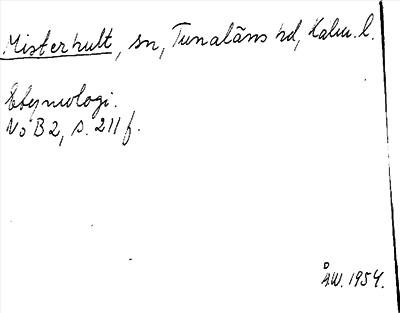 Misterhult, sn, Tunaläns hd, Kalm. l.
Etymologi.
NoB 2, s. 211 f.
ÅW. 1954.